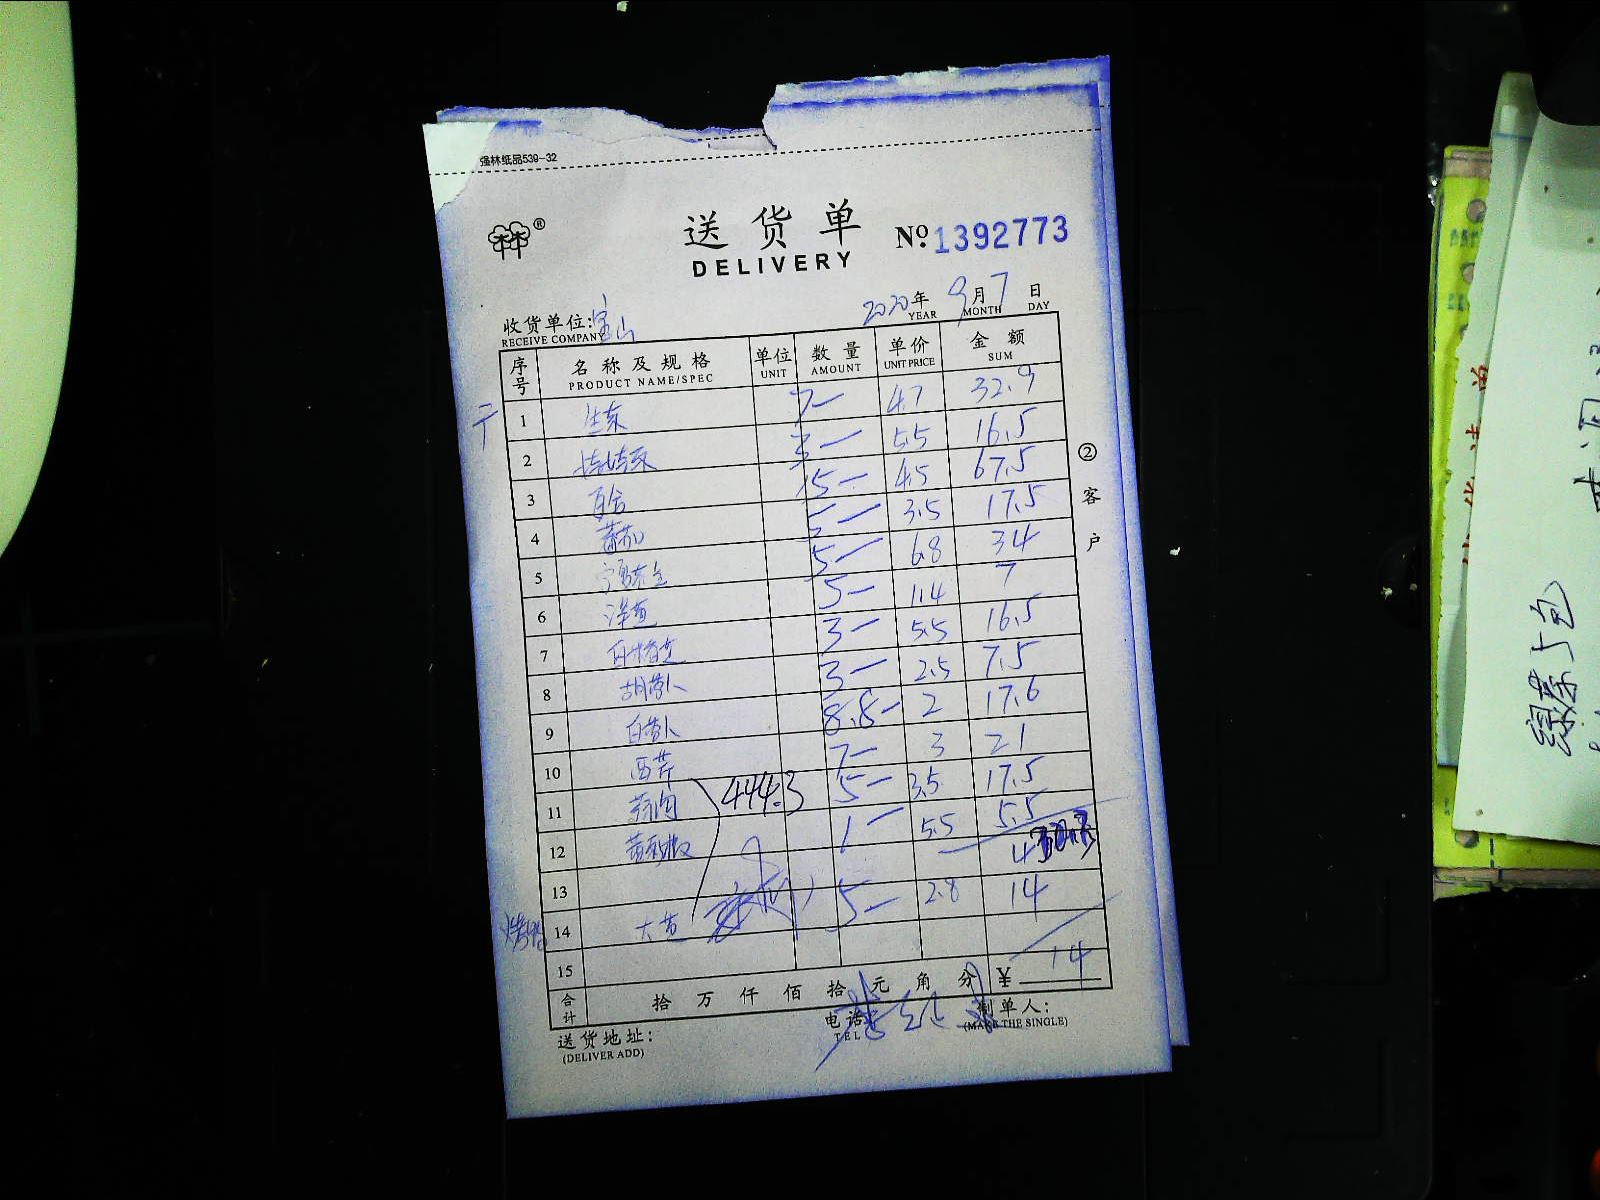 强林纸品539-32
®
送货单 №1392773
DELIVERY
2020年 9月 7日
YEAR MONTH DAY
收货单位:宝山
RECEIVE COMPANY
序号 名称及规格 单位 数量 单价 金额
PRODUCT NAME/SPEC UNIT AMOUNT UNIT PRICE SUM
1 生菜 7— 4.7 32.9
2 3— 5.5 16.5
3 百合 15— 4.5 67.5
4 蕃茄 5— 3.5 17.5
5 5— 6.8 34
6 洋葱 5— 1.4 7
7 3— 5.5 16.5
8 胡萝卜 3— 2.5 7.5
9 白萝卜 8.8— 2 17.6
10 西芹 7— 3 21
11 444.3 5— 3.5 17.5
12 1— 5.5 5.5
13
14 大葱 5— 2.8 14
15
14
合计 拾 万 仟 佰 拾 元 角 分 ¥
送货地址: 电话: 制单人:
(DELIVER ADD) TEL (MAKE THE SINGLE)
②客户
绿茶5包